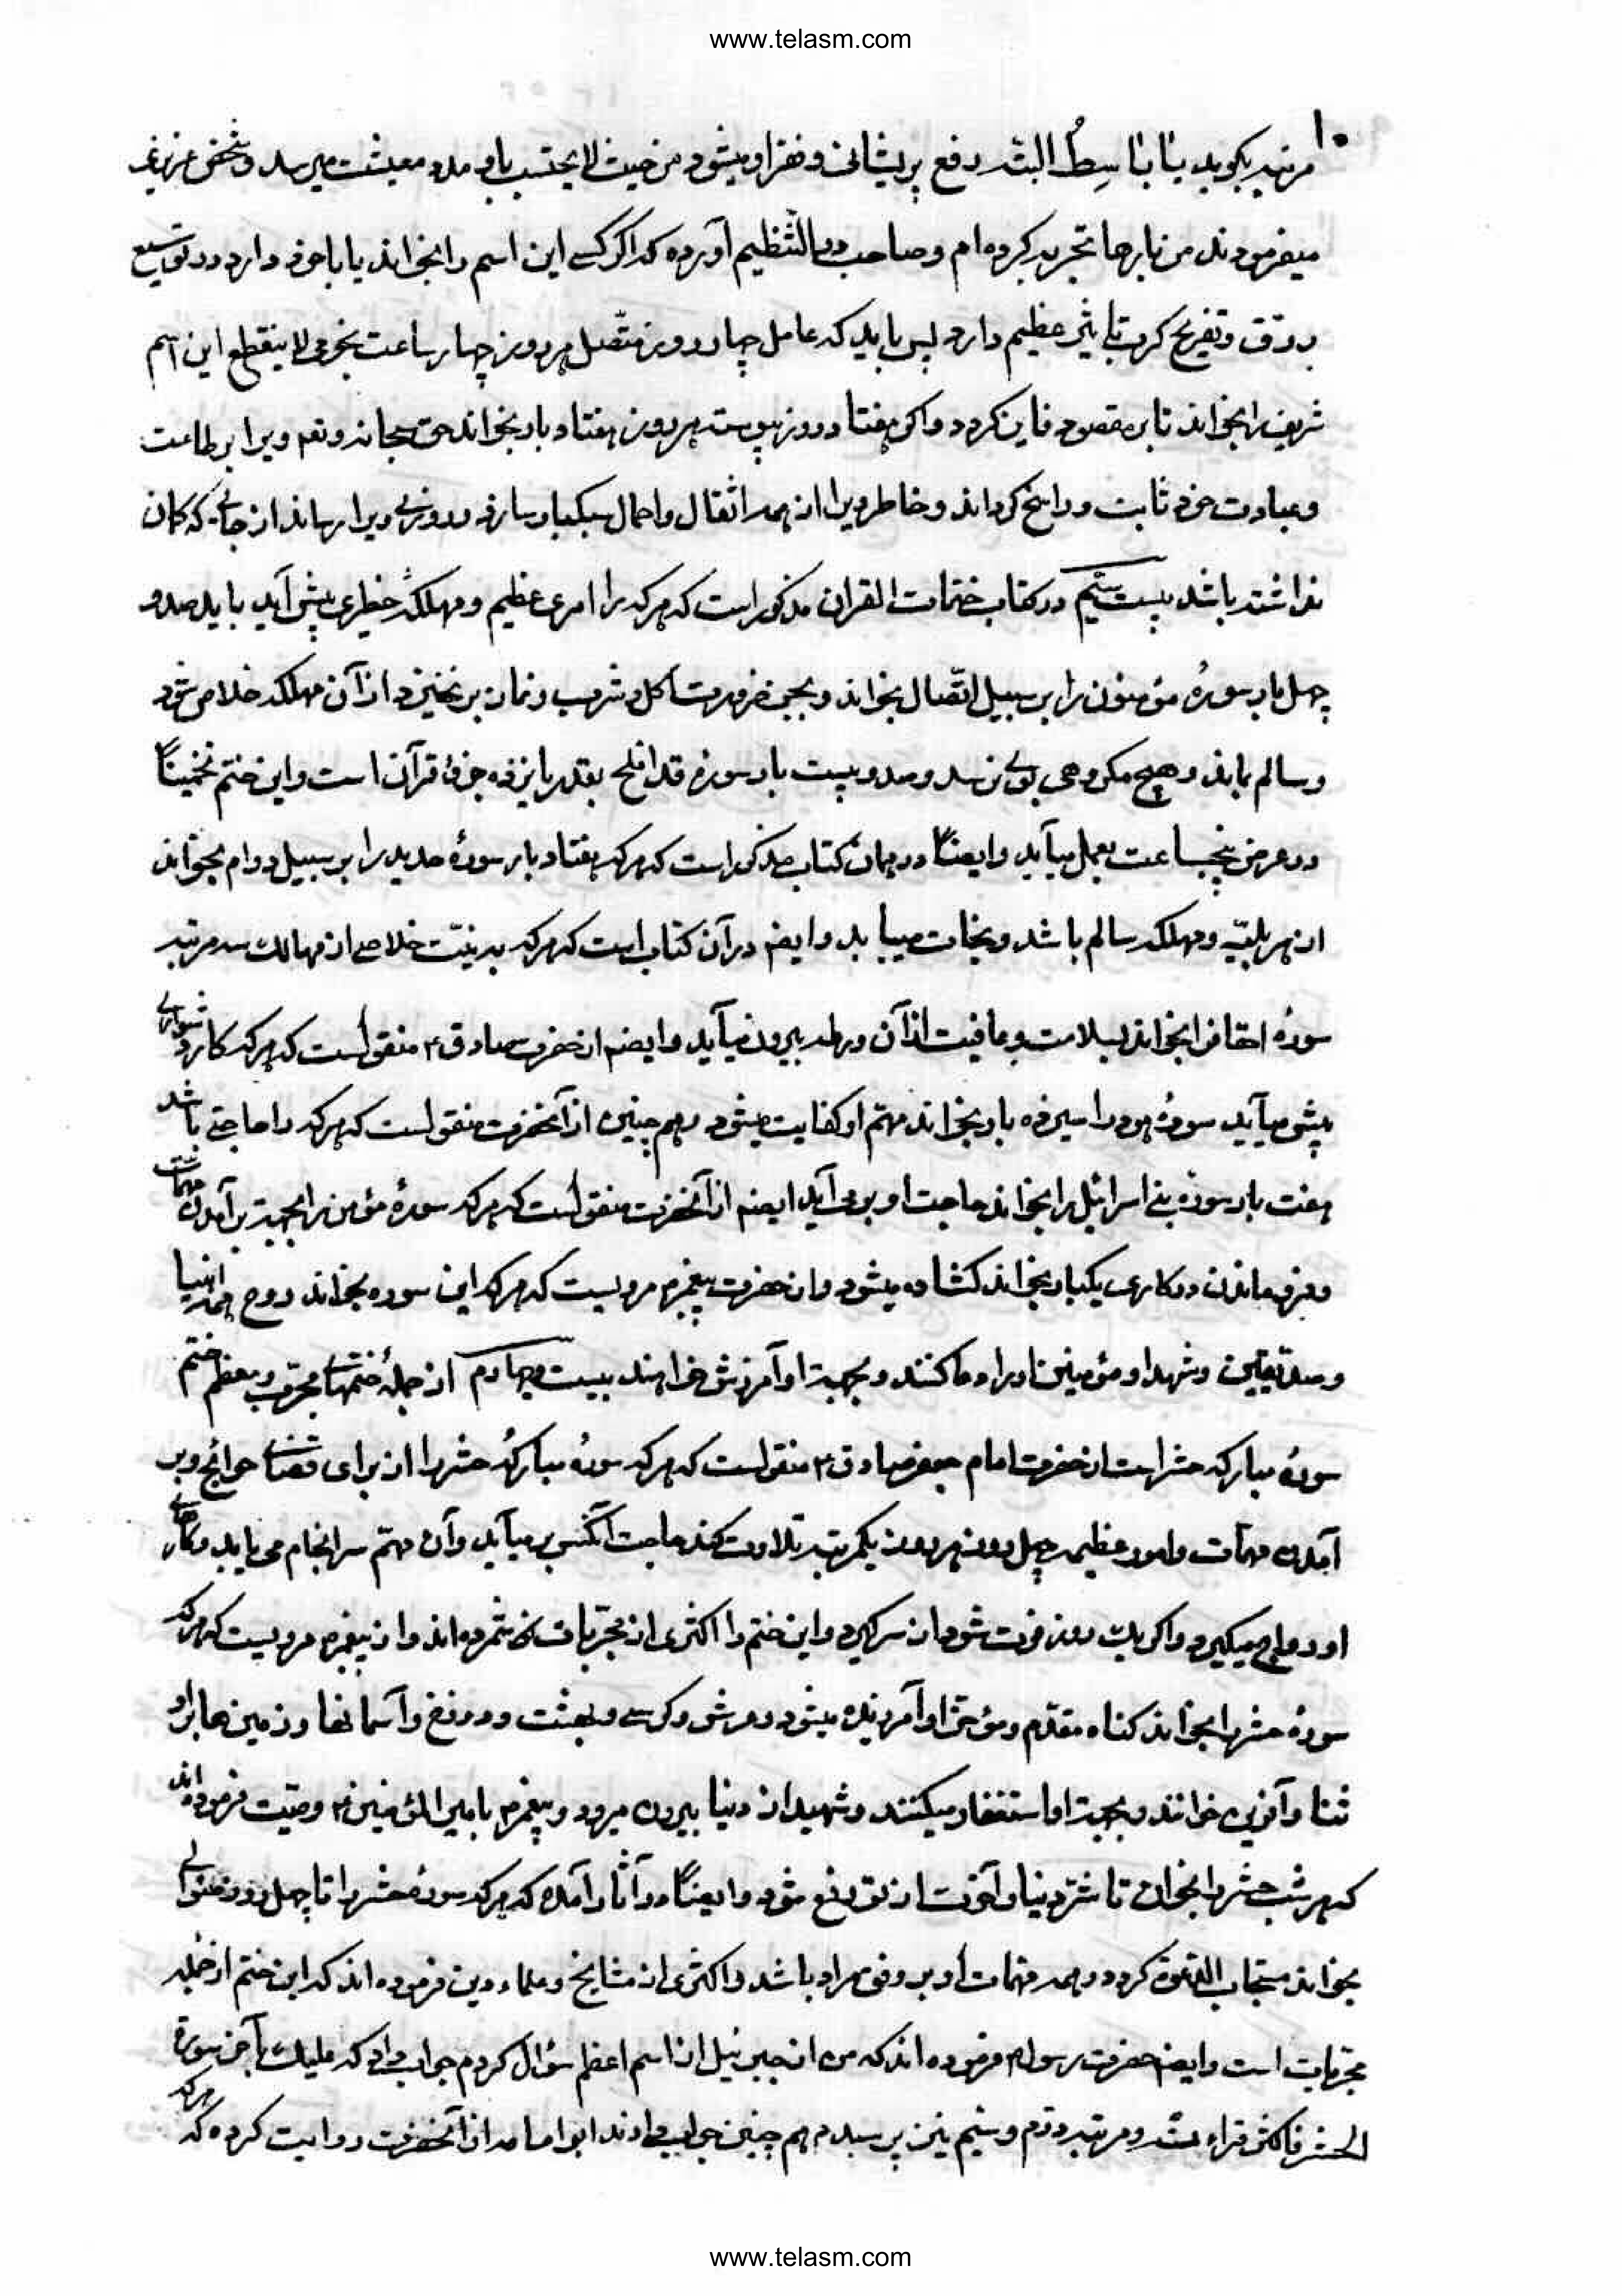 www.telasm.com
۱۰
مرتبه بگوید یا باسِطُ البتّه رفع پریشانی و فقر او میشود و من حیث لا یحتسب باو مدد معیشت میرسد و شخص عزیزی
میفرمودند من بارها تجربه کرده‌ام و صاحب درالنّظیم آورده که اگر کسی این اسم را بخواند یا با خود دارد در توسیع
رزق و تفریح کرب تاثیری عظیم دارد پس باید که عامل چهار روز متّصل هر روز چهار ساعت نجومی لا ینقطع این اسم
شریف را بخواند تا بر مقصود فایز گردد و اگر هفتاد روز پیوسته هر روز هفتاد بار بخواند حق سبحانه و تعه ویرا بر طاعت
و عبادت خود ثابت و راسخ گرداند و خاطر ویرا از همه اثقال و احمال سبکبار سازد و روزی ویرا رساند از جائی که گمان
نداشته باشد بیست سیّم در کتاب ختمات القران مذکور است که هر که را امری عظیم و مهلکهٔ خطیری پیش آید باید صد و
چهل بار سورهٔ مؤمنون را بر سبیل اتّصال بخواند و بجز ضرورت اکل و شرب و نماز بر نخیزد از آن مهلکه خلاص شود
و سالم ماند و هیچ مکروهی بوی نرسد و صد و بیست بار سوره قد افلح بقدر پانزده جزو قرآن است و این ختم تخمیناً
در عرض پنجساعت بعمل میآید و ایضاً در همان کتاب مذکور است که هر که هفتاد بار سورهٔ حدید را بر سبیل دوام بخواند
از هر بلیّه و مهلکه سالم باشد و نجات مییابد و ایضه در آن کتاب است که هر که به نیّت خلاصی از مهالک سه مرتبه
سورهٔ احقاف را بخواند بسلامت و عافیت از آن ورطه بیرون میآید و ایضه از حضرت صادق ۴ منقول است که هر که کار دشواری
پیش میآید سورهٔ هود را سیزده بار بخواند مهمّ او کفایت میشود و هم چنین از آنحضرت منقول است که هر که را حاجتی باشد
هفت بار سورهٔ بنی اسرائیل را بخواند حاجت او بر می‌آید ایضه از آنحضرت منقول است که هر که سورهٔ مؤمن را بجهة بر آمدن مهمات
و فرو ماندن در کاری یکبار بخواند گشاده میشود و از حضرت پیغمبر ص مرویست که هر که این سوره بخواند روح همه انبیا
و صدّیقین و شهدا و مؤمنین او را دعا کنند و بجهة او آمرزش خواهند بیست و چهارم از جملهٔ ختمهای مجرّب و معظم ختم
سورهٔ مبارکه حشر است از حضرت امام جعفر صادق ۴ منقول است که هر که سورهٔ مبارکهٔ حشر را از برای قضای حوائج و بر
آمدن مهمّات و امور عظیمه چهل روز هر روز یکمرتبه تلاوت کند حاجت آنکس بر میآید و آن مهمّ سرانجام می یابد و کارهای
او رواج میگیرد و اگر یک روز فوت شود از سر گیرد و این ختم را اکثری از مجرّبات شمرده‌اند و از پیغمبر ص مرویست که هر که
سورهٔ حشر را بخواند گناه مقدّم و مؤخّر او آمرزیده میشود و عرش و کرسی و بهشت و دوزخ و آسمانها و زمین‌ها بر او
ثنا و آفرین خوانند و بجهة او استغفار میکنند و شهید از دنیا بیرون میرود و پیغمبر ص بامیرالمؤمنین ۴ وصیّت فرموده‌اند
که هر شب حشر را بخوان تا شرّ دنیا و آخرت از تو دفع شود و ایضاً در آثار آمده که هر که سورهٔ حشر را تا چهل روز متوالی
بخواند مستجاب الدّعوة گردد و همه مهمات او بر وفق مراد باشد و اکثری از مشایخ و علماء دین فرموده‌اند که این ختم از جمله
مجرّبات است و ایضه حضرت رسول ص فرموده‌اند که من از جبرئیل از اسم اعظم سؤال کردم جواب داد که علیک بآخر سورة
الحشر فاکثر قراءته و مرتبه دوّم و سیّم نیز پرسیدم هم چنین جواب دادند ابو امامه از آنحضرت روایت کرده که هر که
www.telasm.com